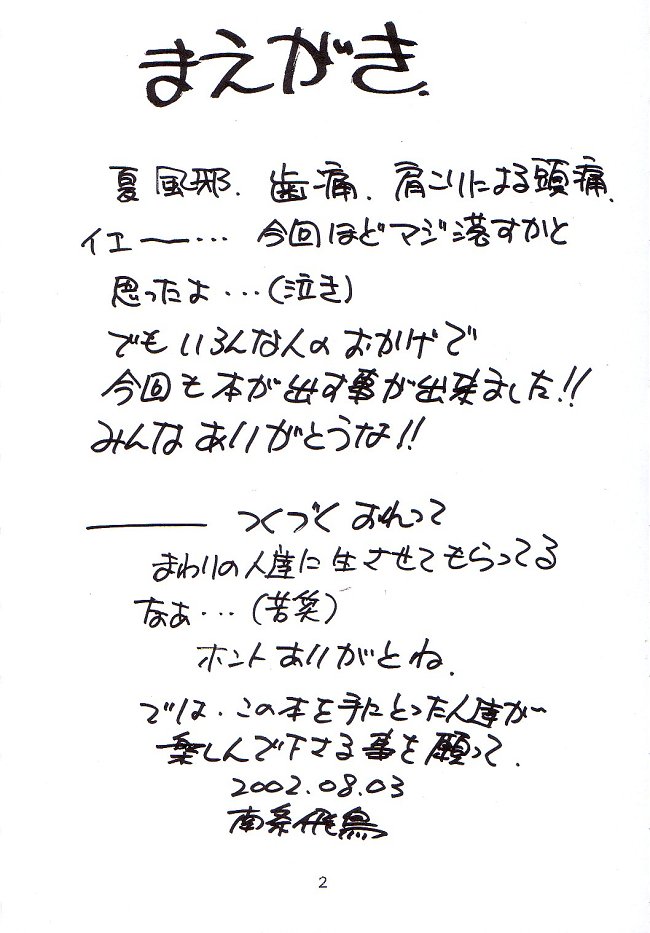 まえがき.
夏風邪. 歯痛. 肩こりによる頭痛.
イエー… 今回ほどマジ落すかと
思ったよ…(泣き)
でもいろんな人のおかげで
今回も本が出す事が出来ました!!
みんなありがとうな!!
――― つくづくおれって
まわりの人達に生させてもらってる
なぁ…(苦笑)
ホントありがとね.
では.この本を手にとった人達が
楽しんで下さる事を願って.
2002.08.03
南条飛鳥
2